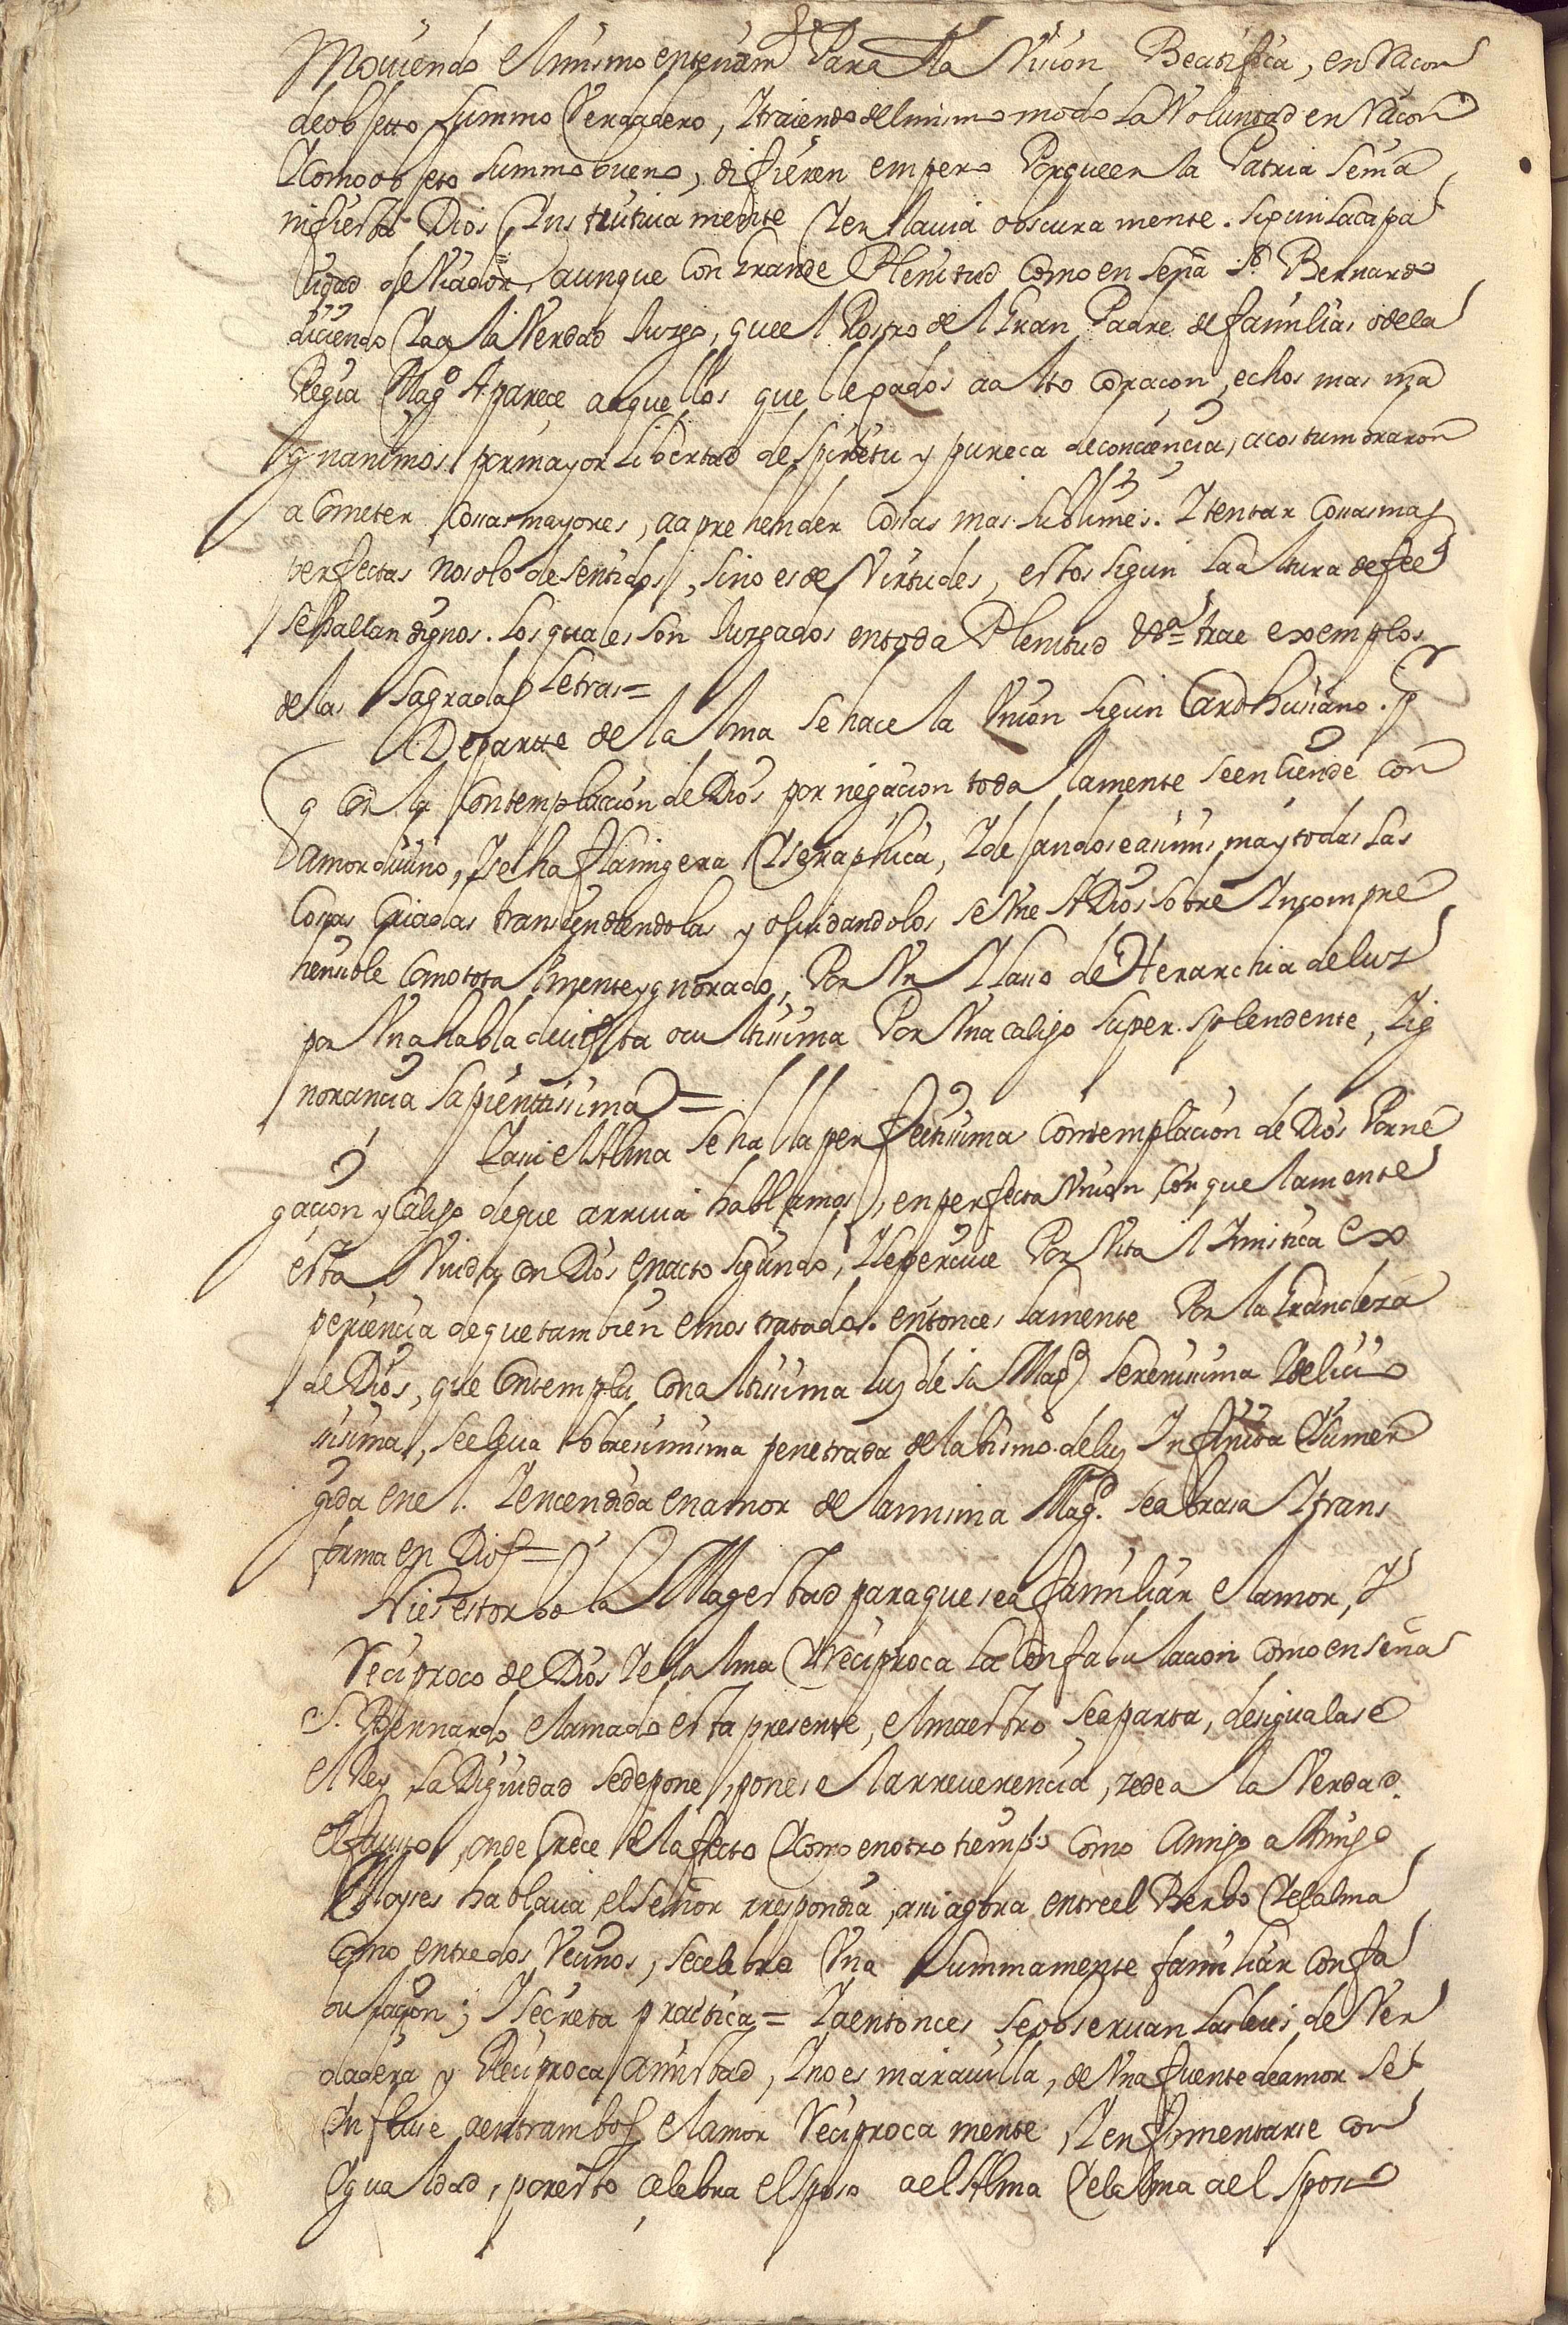 Mouiendo el mismo entendim.to Para la Vnion Beatifica, en Racon
de obietto summo Verdadero, Y traiendo del mismo modo la Voluntad en Racon
Y como obieto summo bueno, difieren empero Porque en la Patria se ma
nifiesta Dios Yntuitiua mente Y en la uia obscura mente. segun la capa
cidad de Viador, aunque con Grande Plenitud como enseña S. Bernardo
diciendo Ya a la Verdad Juzgo, que el Rostro del Gran Padre de familias o de la
Regia Mag.d Aparece aaquellos que llegados a alto coracon, echos mas ma
gnanimos por mayor Libertad de Spiritu y pureça de conciencia, acostumbraron
a cometer cossas mayores, a aprehender cossas mas sublimes. Y tentar cossas mas
perfectas no solo de sentidos, sino es de Virtudes, estos segun la altura de fee
se hallan dignos. los quales son Juzgados en toda Plenitud &a = trae exemplos
de las sagradas Letras =
De parte de la lma se hace la Vnion segun Cardthusiano. P
q con la contemplacion de Dios por negacion toda la mente se enciende con
amor diuino, Y se ha flamigera Y seraphica, Y dejandose asimisma y todas las
cossas criadas transcendiendolas y oluidandolos se Vne A Dios sobre Yncompre
hensible como totalmente ygnorado, Por Vn Rayo de Hierarchia de luz
por Vna habla diuista ocultissima Por Vna caligo super. splendente, Y ig
norancia sapientissima =
Y assi el Alma se halla perfectissima contemplacion de Dios Por ne
gacion y caligo de que arriua hablamos, en perfecta Vnion con que la mente
esta Vnida con Dios en acto segundo, Y se perciue Por Vital Y mistica ex
periencia de que tambien emos tratado. entonces la mente Por la Grandeza
de Dios, que contempla con altissima luz de su Mag.d serenissima Y delicio
sissima, se eleua sobresimisma penetrada del abismo de luz Ynfinita Y sumer
gida en el. Y encendida en amor de la misma Mag.d se abrasa Y trans
forma en Dios =
Ni es estorbo la Magestad para que sea familiar el amor, Y
Reciproco de Dios Y el alma Y Reciproca la confabulacion como enseña
S. Bernardo el amado esta presente, el maestro se aparta, desigualase
el Rey, la Dignidad se depone, ponese la rreuerencia, cede a la Verdad.
el fausto, onde crece el afecto Y como en otro tiempo como Amigo a Amigo
Moyses hablaua, el señor rrespondia, assi agora entre el Berbo Y el alma
como entre dos Vecinos, se celebra Vna summamente familiar confa
bulacion; Y secreta practica = Y a entonces se obseruan las leies de Ver
dadera y Reciproca Amistad, Y no es marauilla, de Vna fuente de amor se
Ynfluie a entrambos el amor Reciproca mente, Y en fomentarse con
Ygualdad, por esto celebra el sposo a el Alma Y el alma a el spos